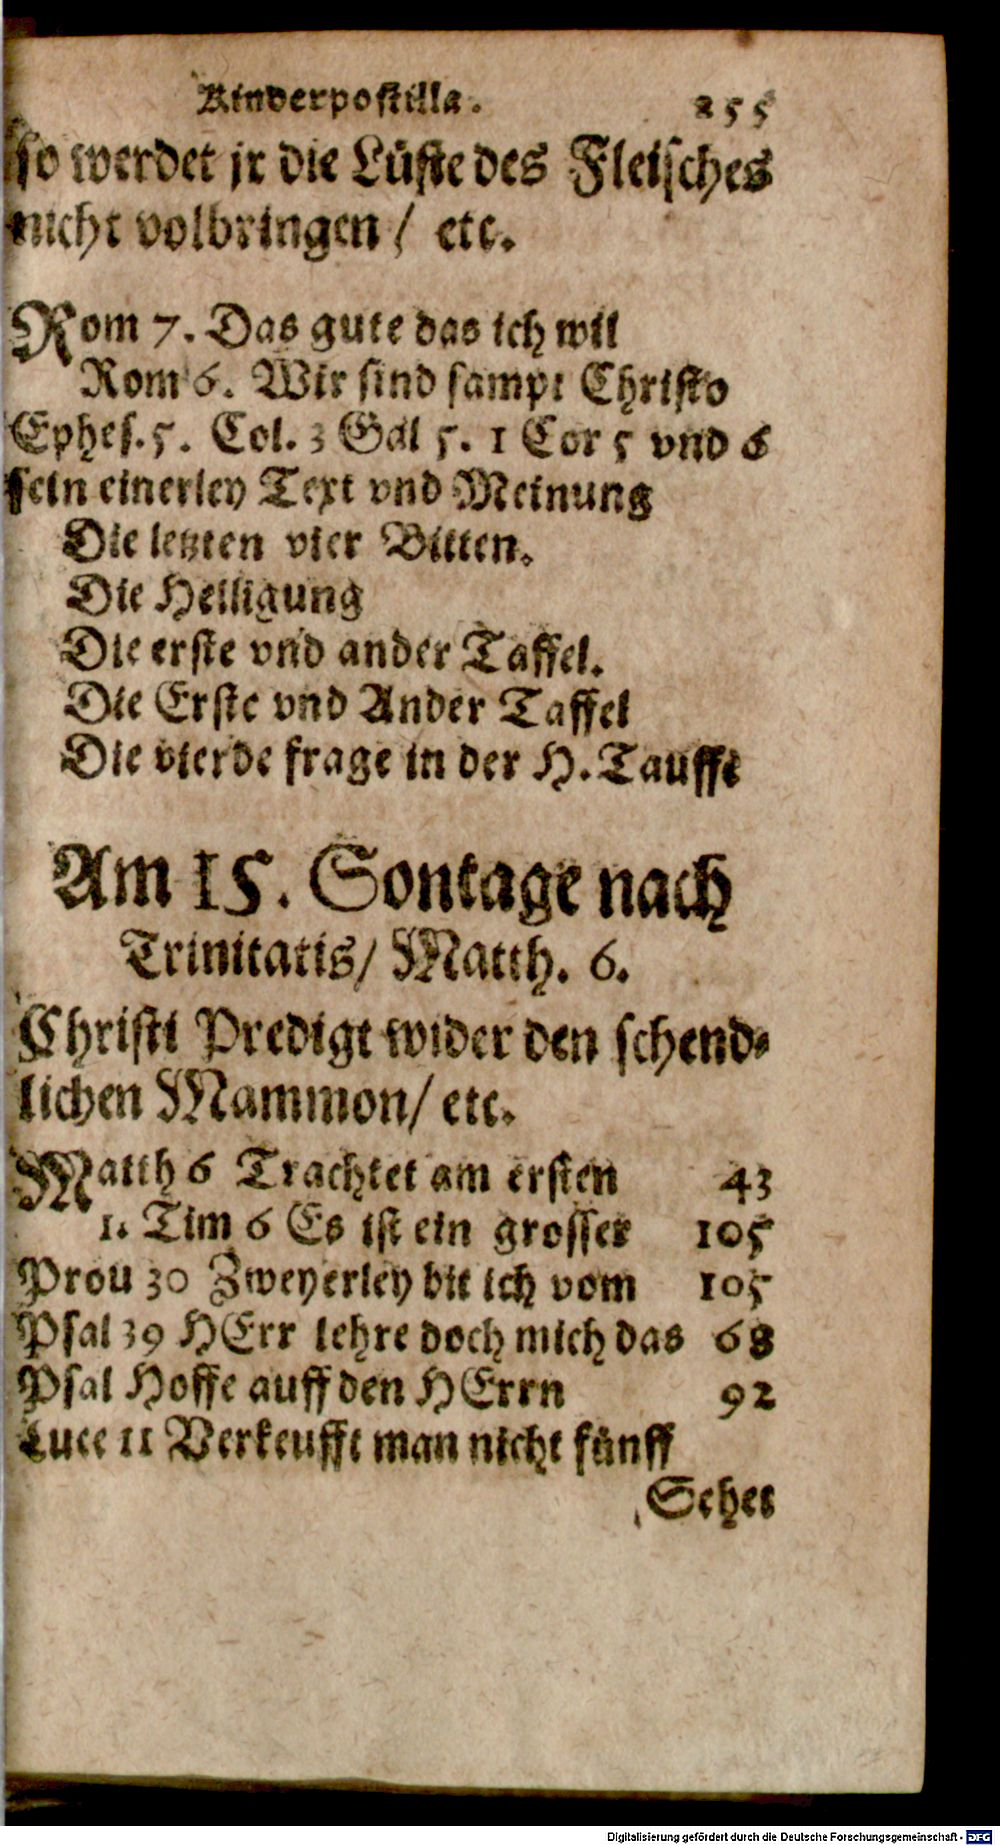 Kinderpostilla. 255
so werdet jr die Lüste des Fleisches
nicht volbringen / etc.
Rom 7. Das gute das ich wil
Rom 6. Wir sind sampt Christo
Ephes. 5. Col. 3 Gal 5. 1 Cor 5 vnd 6
sein einerley Text vnd Meinung
Die letzten vier Bitten.
Die Heiligung
Die erste vnd ander Taffel.
Die Erste vnd Ander Taffel
Die vierde frage in der H. Tauffe
Am 15. Sontage nach
Trinitatis / Matth. 6.
Christi Predigt wider den schend-
lichen Mammon / etc.
Matth 6 Trachtet am ersten 43
1. Tim 6 Es ist ein grosser 105
Prou 30 Zweyerley bit ich vom 105
Psal 39 HErr lehre doch mich das 68
Psal Hoffe auff den HErrn 92
Luce 11 Verkeufft man nicht fünff
Sehet
Digitalisierung gefördert durch die Deutsche Forschungsgemeinschaft - DFG